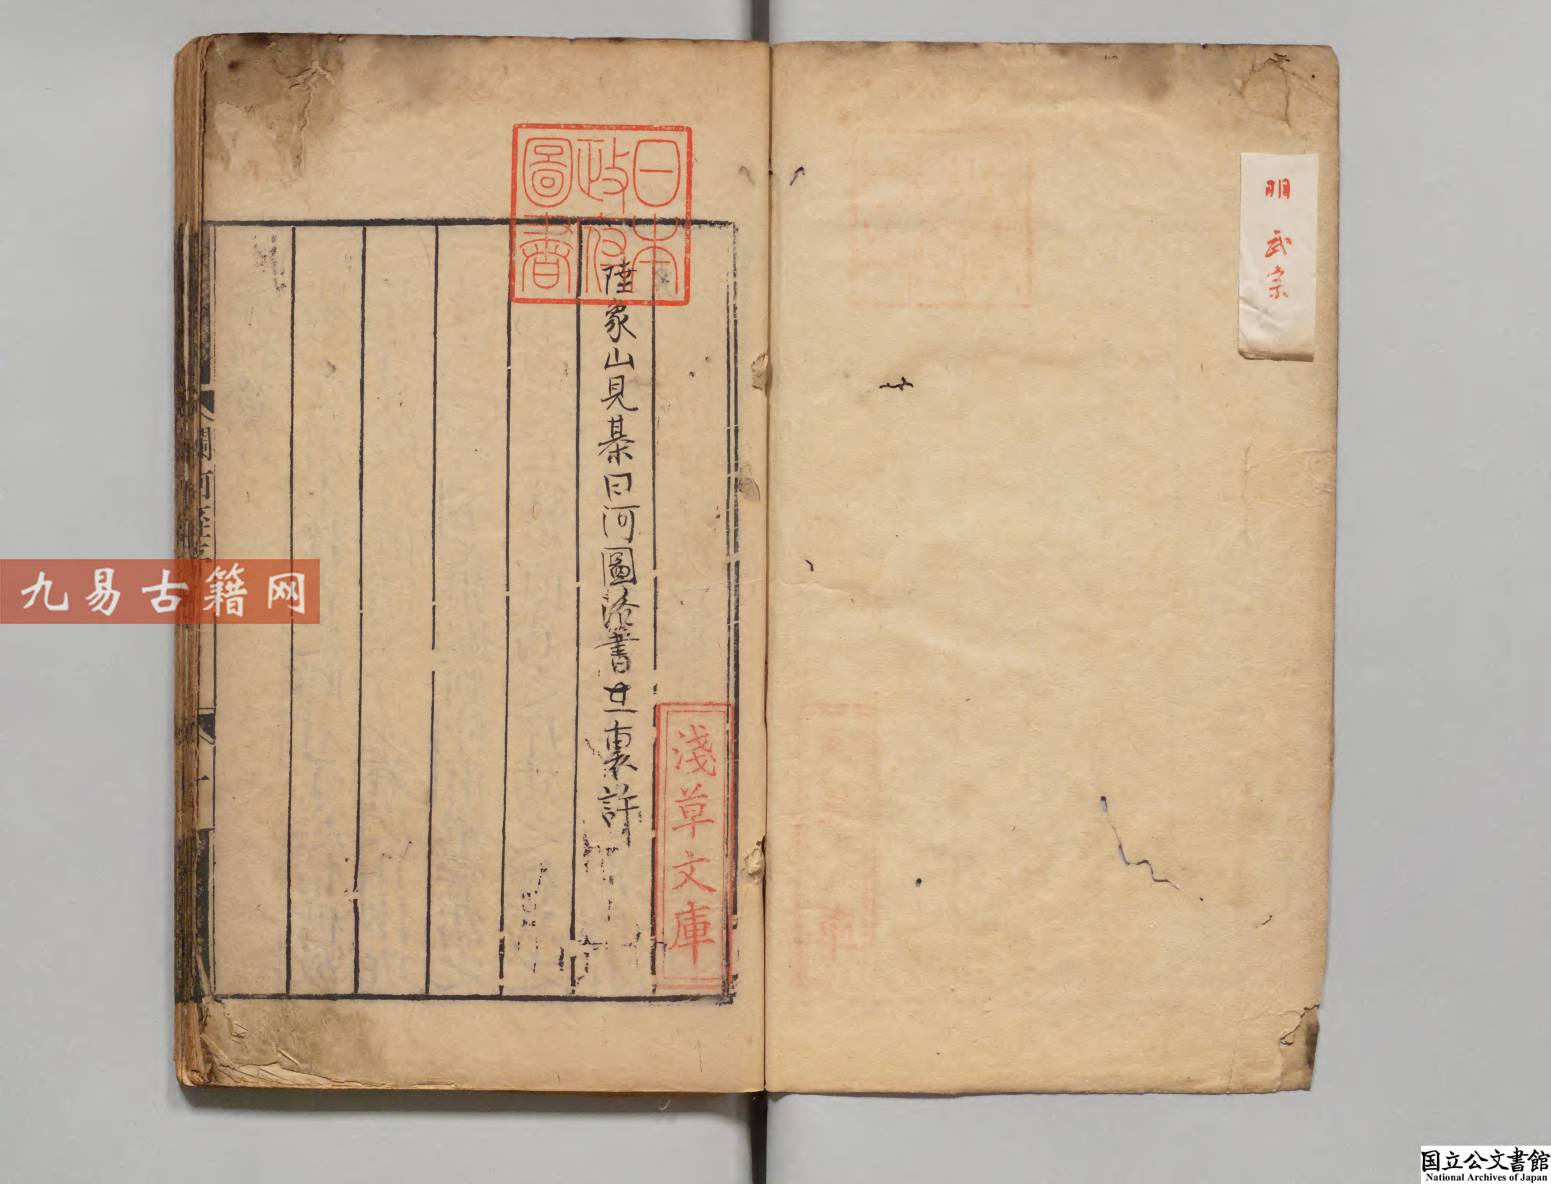 明 武宗
日本
政府
圖書
陸象山見棊曰河圖洛書在裏許
淺草文庫
九易古籍网
国立公文書館
National Archives of Japan